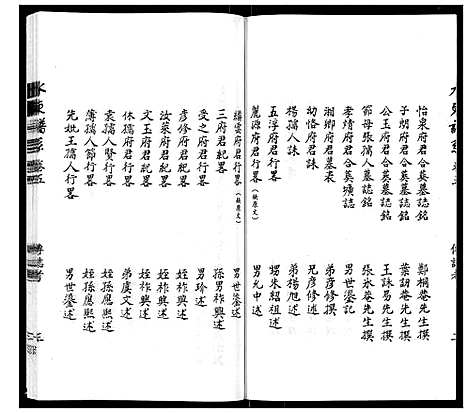 怡泉府君合葬墓誌銘　鄭桐菴先生撰
子閒府君合葬墓誌銘　葉訒菴先生撰
公玉府君合葬墓誌銘　王詠易先生撰
節母張孺人墓誌銘　張永菴先生撰
孝靖府君合葬壙誌　男世鎏記
湘鄉府君墓表　弟彦修撰
幼恪府君誄　兄彦修述
楊孺人誄　弟楊旭述
五淳府君行畧　甥朱紹祖述
麓源府君行畧（缺原文）　男允中述
縉雲府君行畧（缺原文）　男世鎏述
三府君紀畧　孫男祚興述
受之府君行畧　男玠述
彦修府君紀畧　姪祚興述
汝萊府君紀畧　姪祚興述
文玉府君紀畧　姪祚興述
休孺府君行畧　弟虞文述
袁孺人賢行畧　姪孫應熙述
薄孺人節行畧　姪孫應熙述
先妣王孺人行畧　男世鎏述
傳誌考